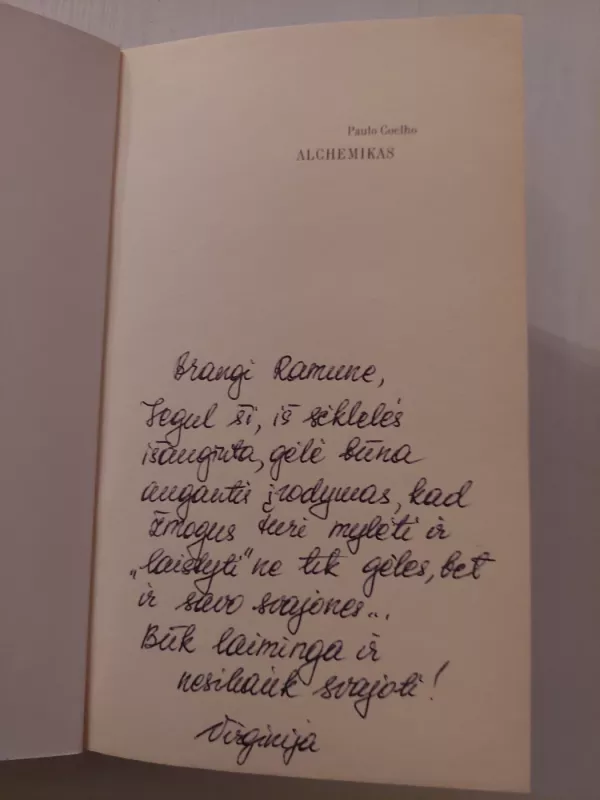 Paulo Coelho
ALCHEMIKAS
Brangi Ramune,
Tegul ši, iš sėklelės
išauginta, gėlė būna
augantis įrodymas, kad
žmogus turi mylėti ir
„laistyti“ ne tik gėles, bet
ir savo svajones...
Būk laiminga ir
nesiliauk svajoti!
Virginija